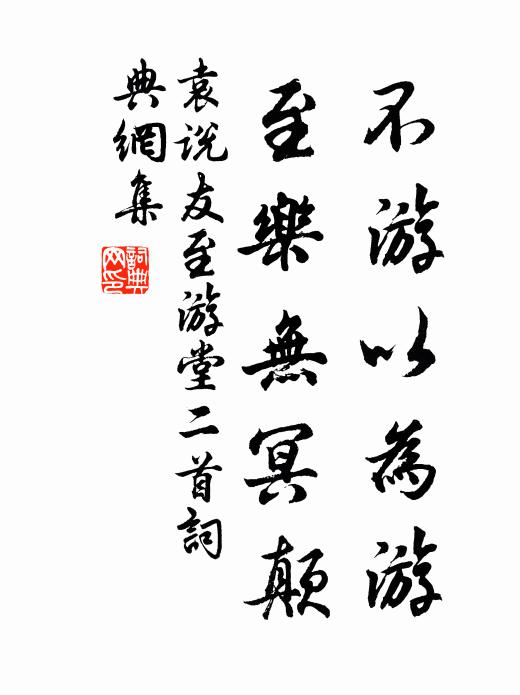 不游以為游
至樂無冥顛
袁説友至游堂二首詞
典網集
詞典網印